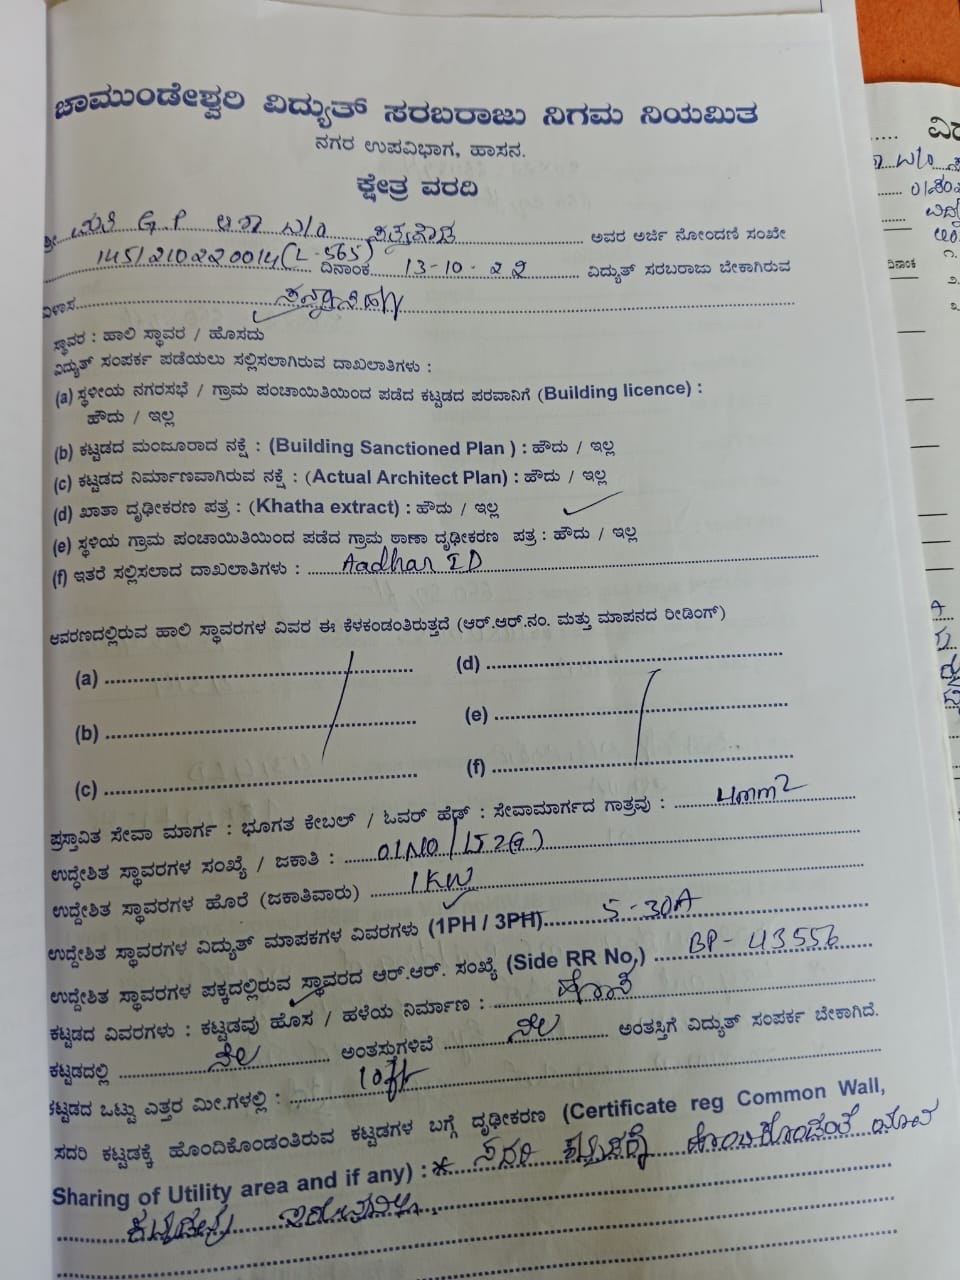 ಚಾಮುಂಡೇಶ್ವರಿ ವಿದ್ಯುತ್ ಸರಬರಾಜು ನಿಗಮ ನಿಯಮಿತ
ನಗರ ಉಪವಿಭಾಗ, ಹಾಸನ.
ಕ್ಷೇತ್ರ ವರದಿ
ಶ್ರೀ ಮತಿ G.P ಆಶಾ W/o ಅವರ ಅರ್ಜಿ ನೋಂದಣಿ ಸಂಖೇ
1451210220014(L-565) ದಿನಾಂಕ 13-10-22 ವಿದ್ಯುತ್ ಸರಬರಾಜು ಬೇಕಾಗಿರುವ
ವಿಳಾಸ
ಸ್ಥಾವರ : ಹಾಲಿ ಸ್ಥಾವರ / ಹೊಸದು
ವಿದ್ಯುತ್ ಸಂಪರ್ಕ ಪಡೆಯಲು ಸಲ್ಲಿಸಲಾಗಿರುವ ದಾಖಲಾತಿಗಳು :
(a) ಸ್ಥಳೀಯ ನಗರಸಭೆ / ಗ್ರಾಮ ಪಂಚಾಯಿತಿಯಿಂದ ಪಡೆದ ಕಟ್ಟಡದ ಪರವಾನಿಗೆ (Building licence) :
ಹೌದು / ಇಲ್ಲ
(b) ಕಟ್ಟಡದ ಮಂಜೂರಾದ ನಕ್ಷೆ : (Building Sanctioned Plan ) : ಹೌದು / ಇಲ್ಲ
(c) ಕಟ್ಟಡದ ನಿರ್ಮಾಣವಾಗಿರುವ ನಕ್ಷೆ : (Actual Architect Plan) : ಹೌದು / ಇಲ್ಲ
(d) ಖಾತಾ ದೃಢೀಕರಣ ಪತ್ರ : (Khatha extract) : ಹೌದು / ಇಲ್ಲ
(e) ಸ್ಥಳಿಯ ಗ್ರಾಮ ಪಂಚಾಯಿತಿಯಿಂದ ಪಡೆದ ಗ್ರಾಮ ಠಾಣಾ ದೃಢೀಕರಣ ಪತ್ರ : ಹೌದು / ಇಲ್ಲ
(f) ಇತರೆ ಸಲ್ಲಿಸಲಾದ ದಾಖಲಾತಿಗಳು : Aadhar ID
ಆವರಣದಲ್ಲಿರುವ ಹಾಲಿ ಸ್ಥಾವರಗಳ ವಿವರ ಈ ಕೆಳಕಂಡಂತಿರುತ್ತದೆ (ಆರ್.ಆರ್.ನಂ. ಮತ್ತು ಮಾಪನದ ರೀಡಿಂಗ್)
(a) (d)
(b) (e)
(c) (f)
ಪ್ರಸ್ತಾವಿತ ಸೇವಾ ಮಾರ್ಗ : ಭೂಗತ ಕೇಬಲ್ / ಓವರ್ ಹೆಡ್ : ಸೇವಾಮಾರ್ಗದ ಗಾತ್ರವು : 4mm2
ಉದ್ಧೇಶಿತ ಸ್ಥಾವರಗಳ ಸಂಖ್ಯೆ / ಜಕಾತಿ : 01 NO / LT 2(a)
ಉದ್ದೇಶಿತ ಸ್ಥಾವರಗಳ ಹೊರೆ (ಜಕಾತಿವಾರು) 1 KW
ಉದ್ದೇಶಿತ ಸ್ಥಾವರಗಳ ವಿದ್ಯುತ್ ಮಾಪಕಗಳ ವಿವರಗಳು (1PH / 3PH) 5-30A
ಉದ್ದೇಶಿತ ಸ್ಥಾವರಗಳ ಪಕ್ಕದಲ್ಲಿರುವ ಸ್ಥಾವರದ ಆರ್.ಆರ್. ಸಂಖ್ಯೆ (Side RR No,) BP-43556
ಕಟ್ಟಡದ ವಿವರಗಳು : ಕಟ್ಟಡವು ಹೊಸ / ಹಳೆಯ ನಿರ್ಮಾಣ :
ಕಟ್ಟಡದಲ್ಲಿ ನೆಲ ಅಂತಸ್ತುಗಳಿವೆ ನೆಲ ಅಂತಸ್ತಿಗೆ ವಿದ್ಯುತ್ ಸಂಪರ್ಕ ಬೇಕಾಗಿದೆ.
ಕಟ್ಟಡದ ಒಟ್ಟು ಎತ್ತರ ಮೀ.ಗಳಲ್ಲಿ : 10ft
ಸದರಿ ಕಟ್ಟಡಕ್ಕೆ ಹೊಂದಿಕೊಂಡಂತಿರುವ ಕಟ್ಟಡಗಳ ಬಗ್ಗೆ ದೃಢೀಕರಣ (Certificate reg Common Wall,
Sharing of Utility area and if any) : * ಸದರಿ ಕಟ್ಟಡಕ್ಕೆ ಹೊಂದಿಕೊಂಡಂತೆ ಯಾವ